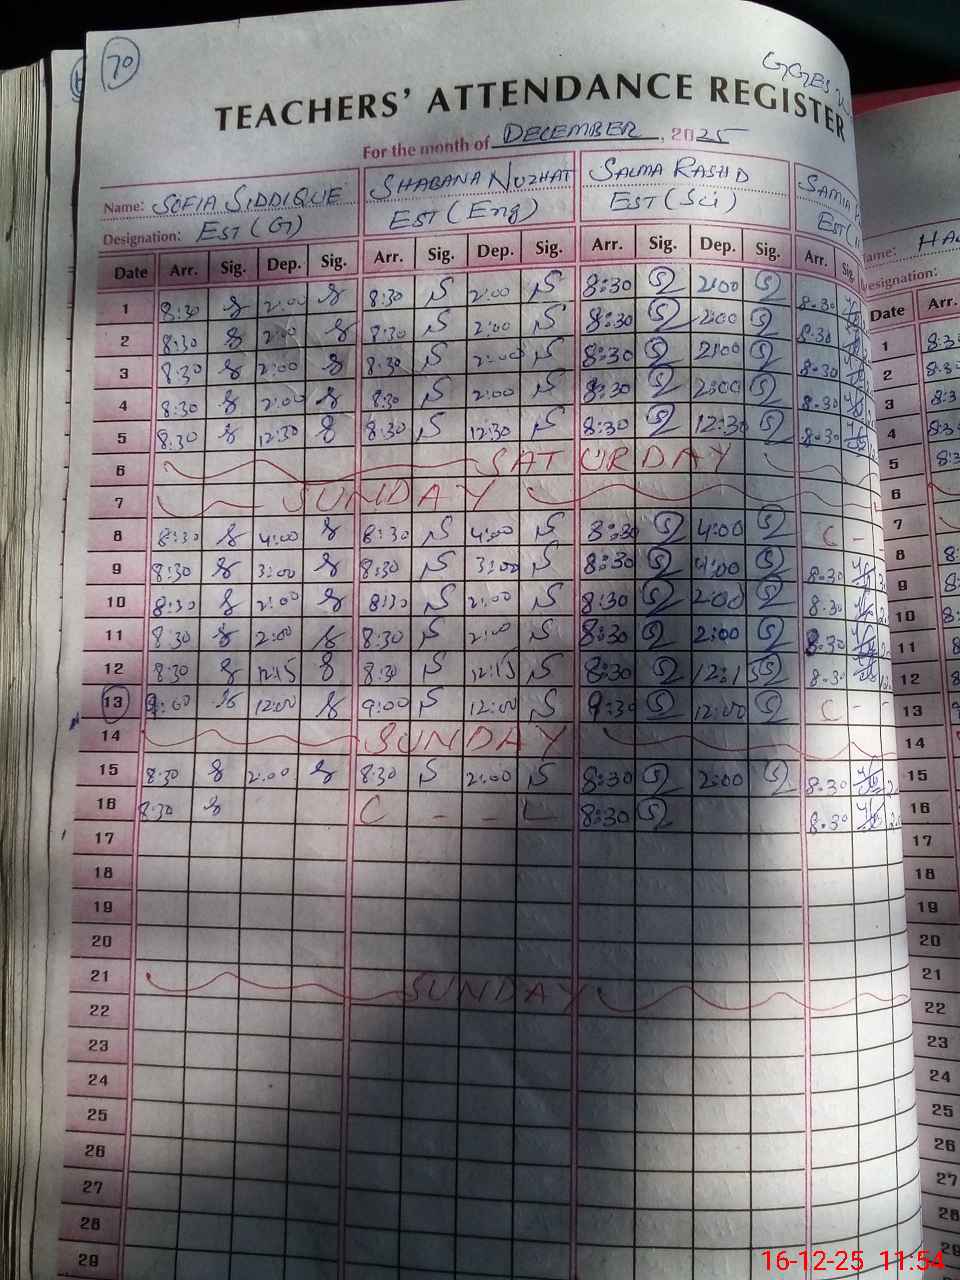 70
GGES
TEACHERS' ATTENDANCE REGISTER
For the month of DECEMBER, 2025
Name: SOFIA SIDDIQUE SHABANA NUZHAT SALMA RASHD SAMIA
Designation: EST (G) EST (Eng) EST (Sci) EST
Date Arr. Sig. Dep. Sig. Arr. Sig. Dep. Sig. Arr. Sig. Dep. Sig. Arr. Sig.
1 8:30 2:00 8:30 2:00 8:30 2:00 8:30
2 8:30 2:00 8:30 2:00 8:30 2:00 8:30
3 8:30 2:00 8:30 2:00 8:30 2:00 8:30
4 8:30 2:00 8:30 2:00 8:30 2:00 8:30
5 8:30 12:30 8:30 12:30 8:30 12:30 8:30
6 SATURDAY
7 SUNDAY
8 8:30 4:00 8:30 4:00 8:30 4:00 C - -
9 8:30 3:00 8:30 3:00 8:30 4:00 8:30
10 8:30 2:00 8:30 2:00 8:30 2:00 8:30
11 8:30 2:00 8:30 2:00 8:30 2:00 8:30
12 8:30 12:15 8:30 12:15 8:30 12:15 8:30
13 9:00 12:00 9:00 12:00 9:30 12:00 C - -
14 SUNDAY
15 8:30 2:00 8:30 2:00 8:30 2:00 8:30
16 8:30 C - - L 8:30 8:30
17
18
19
20
21 SUNDAY
22
23
24
25
26
27
28
29
Name: HA
Designation:
Date Arr.
1 8:3
2 8:3
3 8:3
4 8:3
5 8:3
6
7
8 8:
9 8:
10 8:
11 8
12 8
13
14
15
16
17
18
19
20
21
22
23
24
25
26
27
28
29
16-12-25 11:54